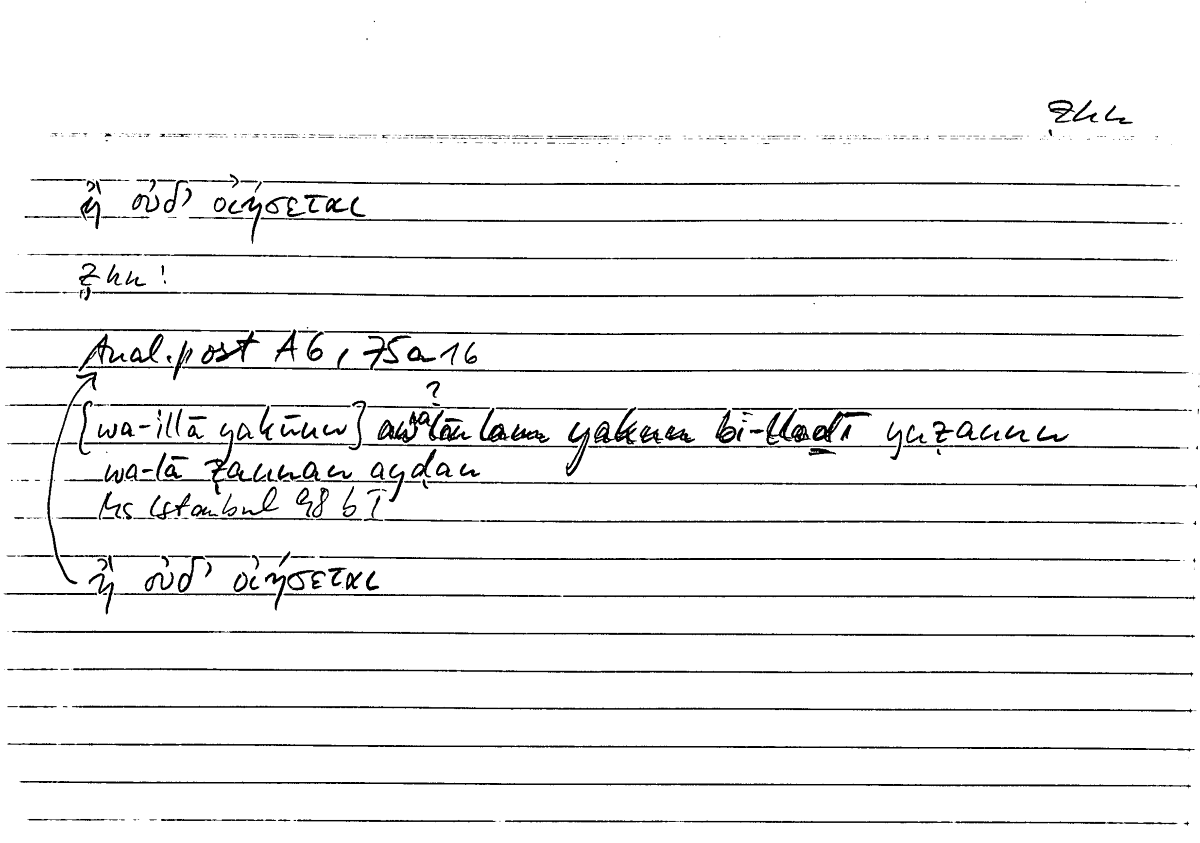 ẓnn
ἢ οὐδ’ οἰήσεται
ẓnn!
Anal. post A6, 75a16
?
[wa-illā yakūnu] lam yakun bi-lladī yuẓannu
wa-lā ẓannan ayḍan
Ms Istanbul 98 b I
ἢ οὐδ’ οἰήσεται